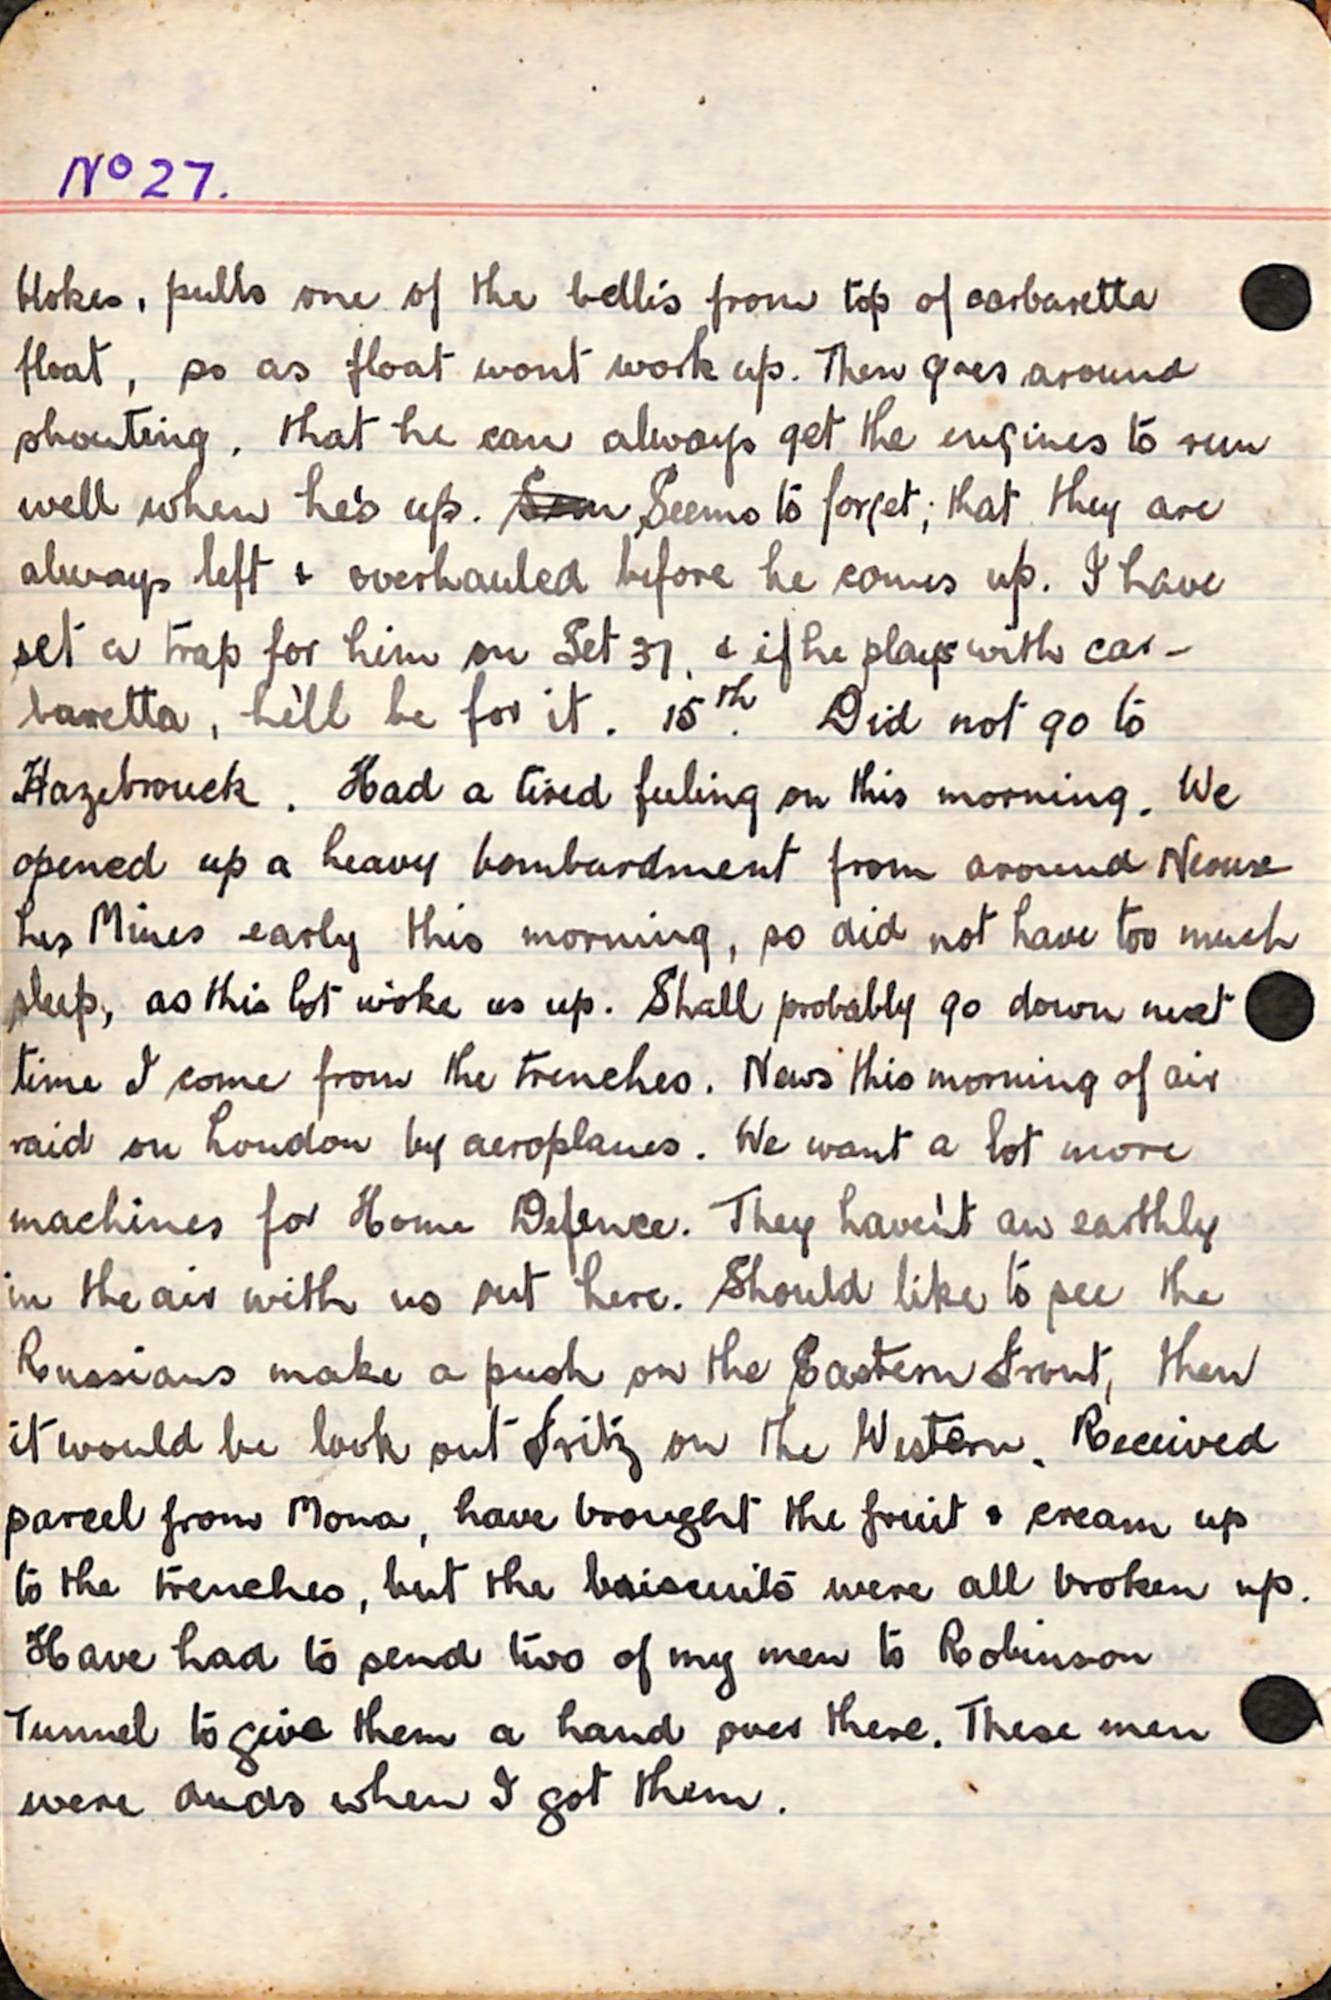 No 27.
blokes, pulls one of the bellis from top of carburetta
float, so as float wont work up. Then goes around
shouting, that he can always get the engines to run
well when he's up. Seems to forget; that they are
always left & overhauled before he comes up. I have
set a trap for him on Set 37, & if he plays with car-
buretta, he'll be for it. 15th. Did not go to
Hazebrouck. Had a tired feeling on this morning. We
opened up a heavy bombardment from around Neoux
les Mines early this morning, so did not have too much
sleep, as this lot woke us up. Shall probably go down next
time I come from the trenches. News this morning of air
raid on London by aeroplanes. We want a lot more
machines for Home Defence. They haven't an earthly
in the air with us out here. Should like to see the
Russians make a push on the Eastern Front, then
it would be look out Fritz on the Western. Received
parcel from Mona, have brought the fruit & cream up
to the trenches, but the biscuits were all broken up.
Have had to send two of my men to Robinson
Tunnel to give them a hand over there. These men
were duds when I got them.